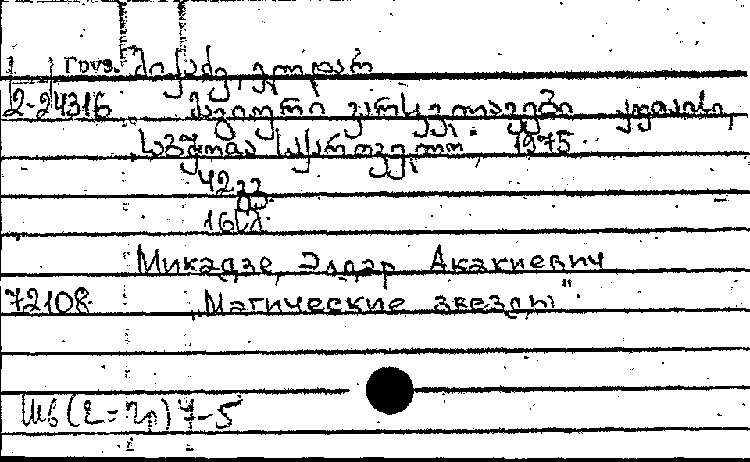 Груз. მიქაძე, ელდარ
2-24316 მაგიური ვარსკვლავები
საბჭოთა საქართველო, 1975
42 გვ
16
Микадзе, Элдар Акакиевич
72108 „Магические звезды".
Шб(2=Гр)7-5